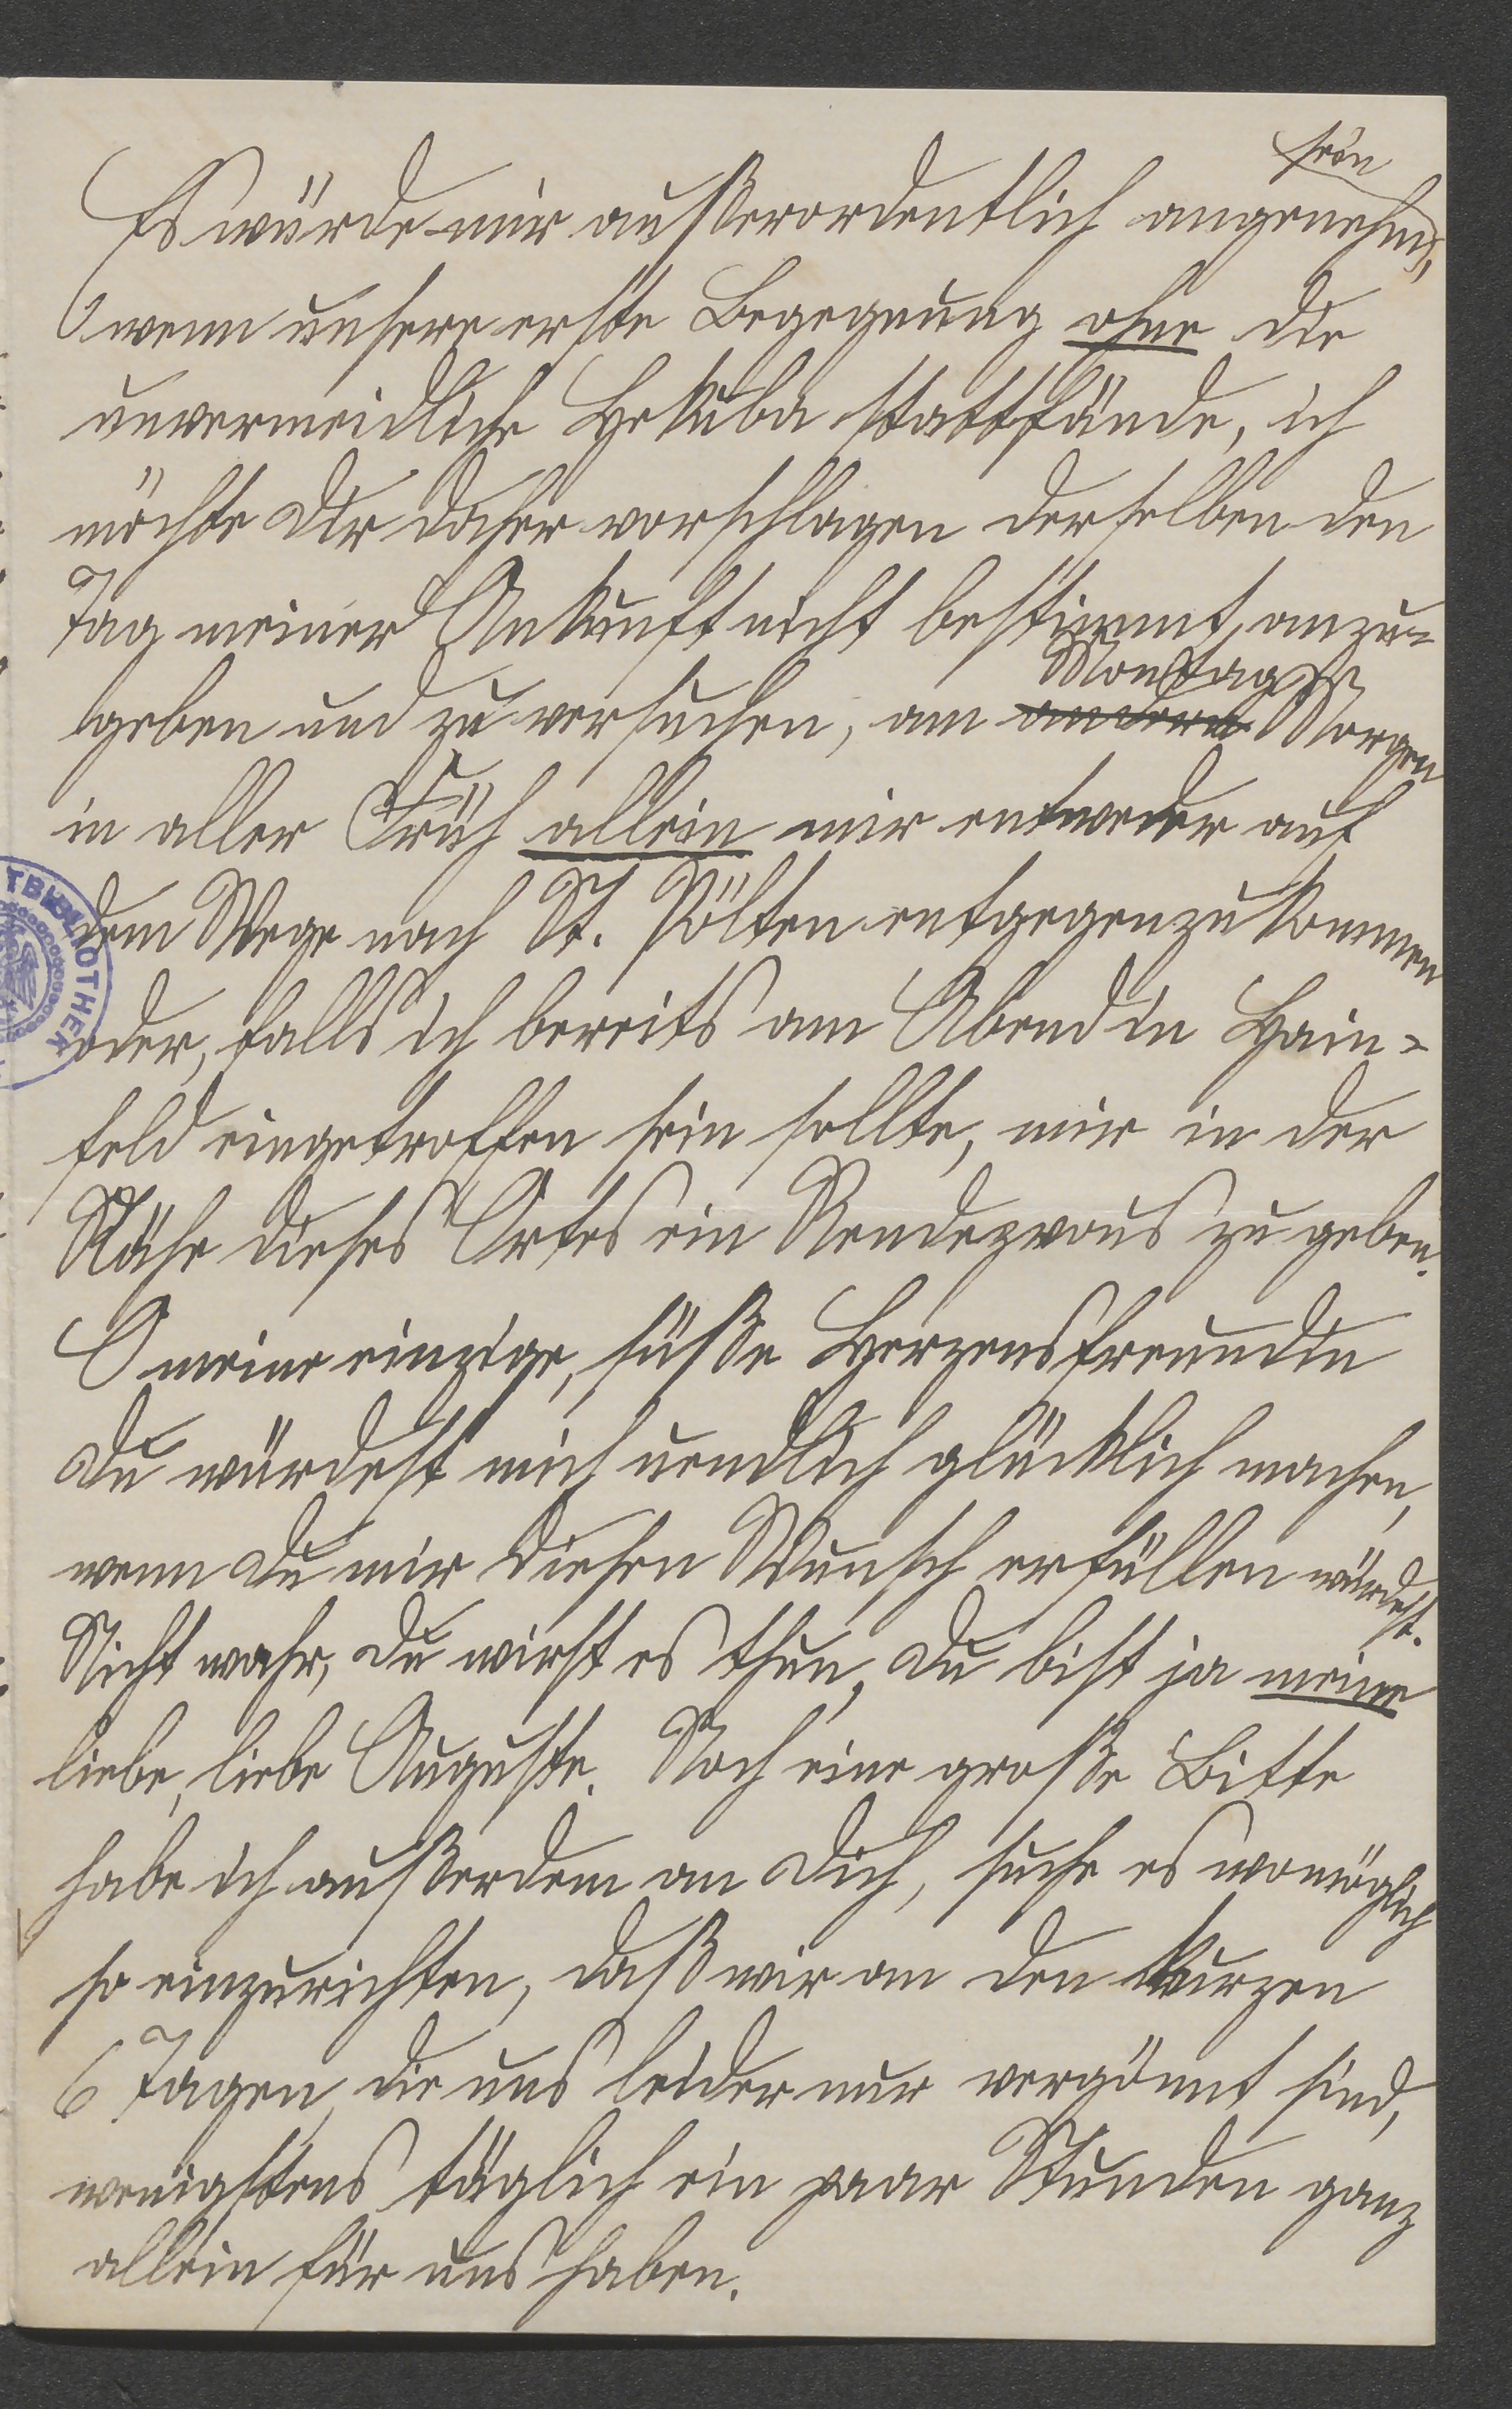 sein
Es würde mir außerordentlich angenehm,
wenn unsere erste Begegnung ohne die
unvermeidliche Hekuba stattfände, ich
möchte Dir daher vorschlagen derselben den
Tag meiner Ankunft nicht bestimmt anzu=
Montag
geben und zu versuchen, am andern Morgen
in aller Früh allein mir entweder auf
dem Wege nach St. Pölten entgegenzukommen
oder, falls ich bereits am Abend in Hain=
feld eingetroffen sein sollte, mir in der
Nähe dieses Ortes ein Rendezvous zu geben.
O meine einzige, süße Herzensfreundin
Du würdest mich unendlich glücklich machen,
wenn Du mir diesen Wunsch erfüllen würdest.
Nicht wahr, Du wirst es thun, Du bist ja meine
liebe, liebe Auguste. Noch eine große Bitte
habe ich außerdem an Dich, suche es womöglich
so einzurichten, daß wir an den kurzen
6 Tagen, die uns leider nur vergönnt sind,
wenigstens täglich ein paar Stunden ganz
allein für uns haben.
TBIBLIOTHEK